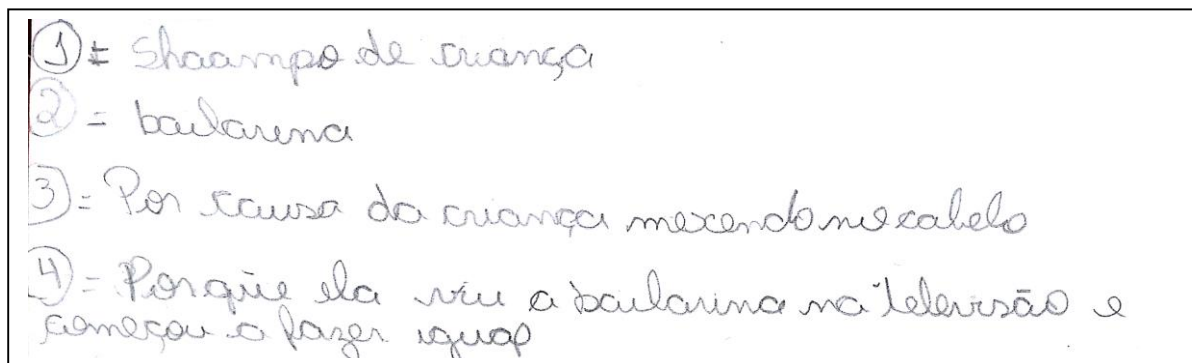 1 = Shaampo de criança
2 = bailarina
3 = Por causa da criança mexendo no cabelo
4 = Porque ela viu a bailarina na televisão e
começou a fazer igual